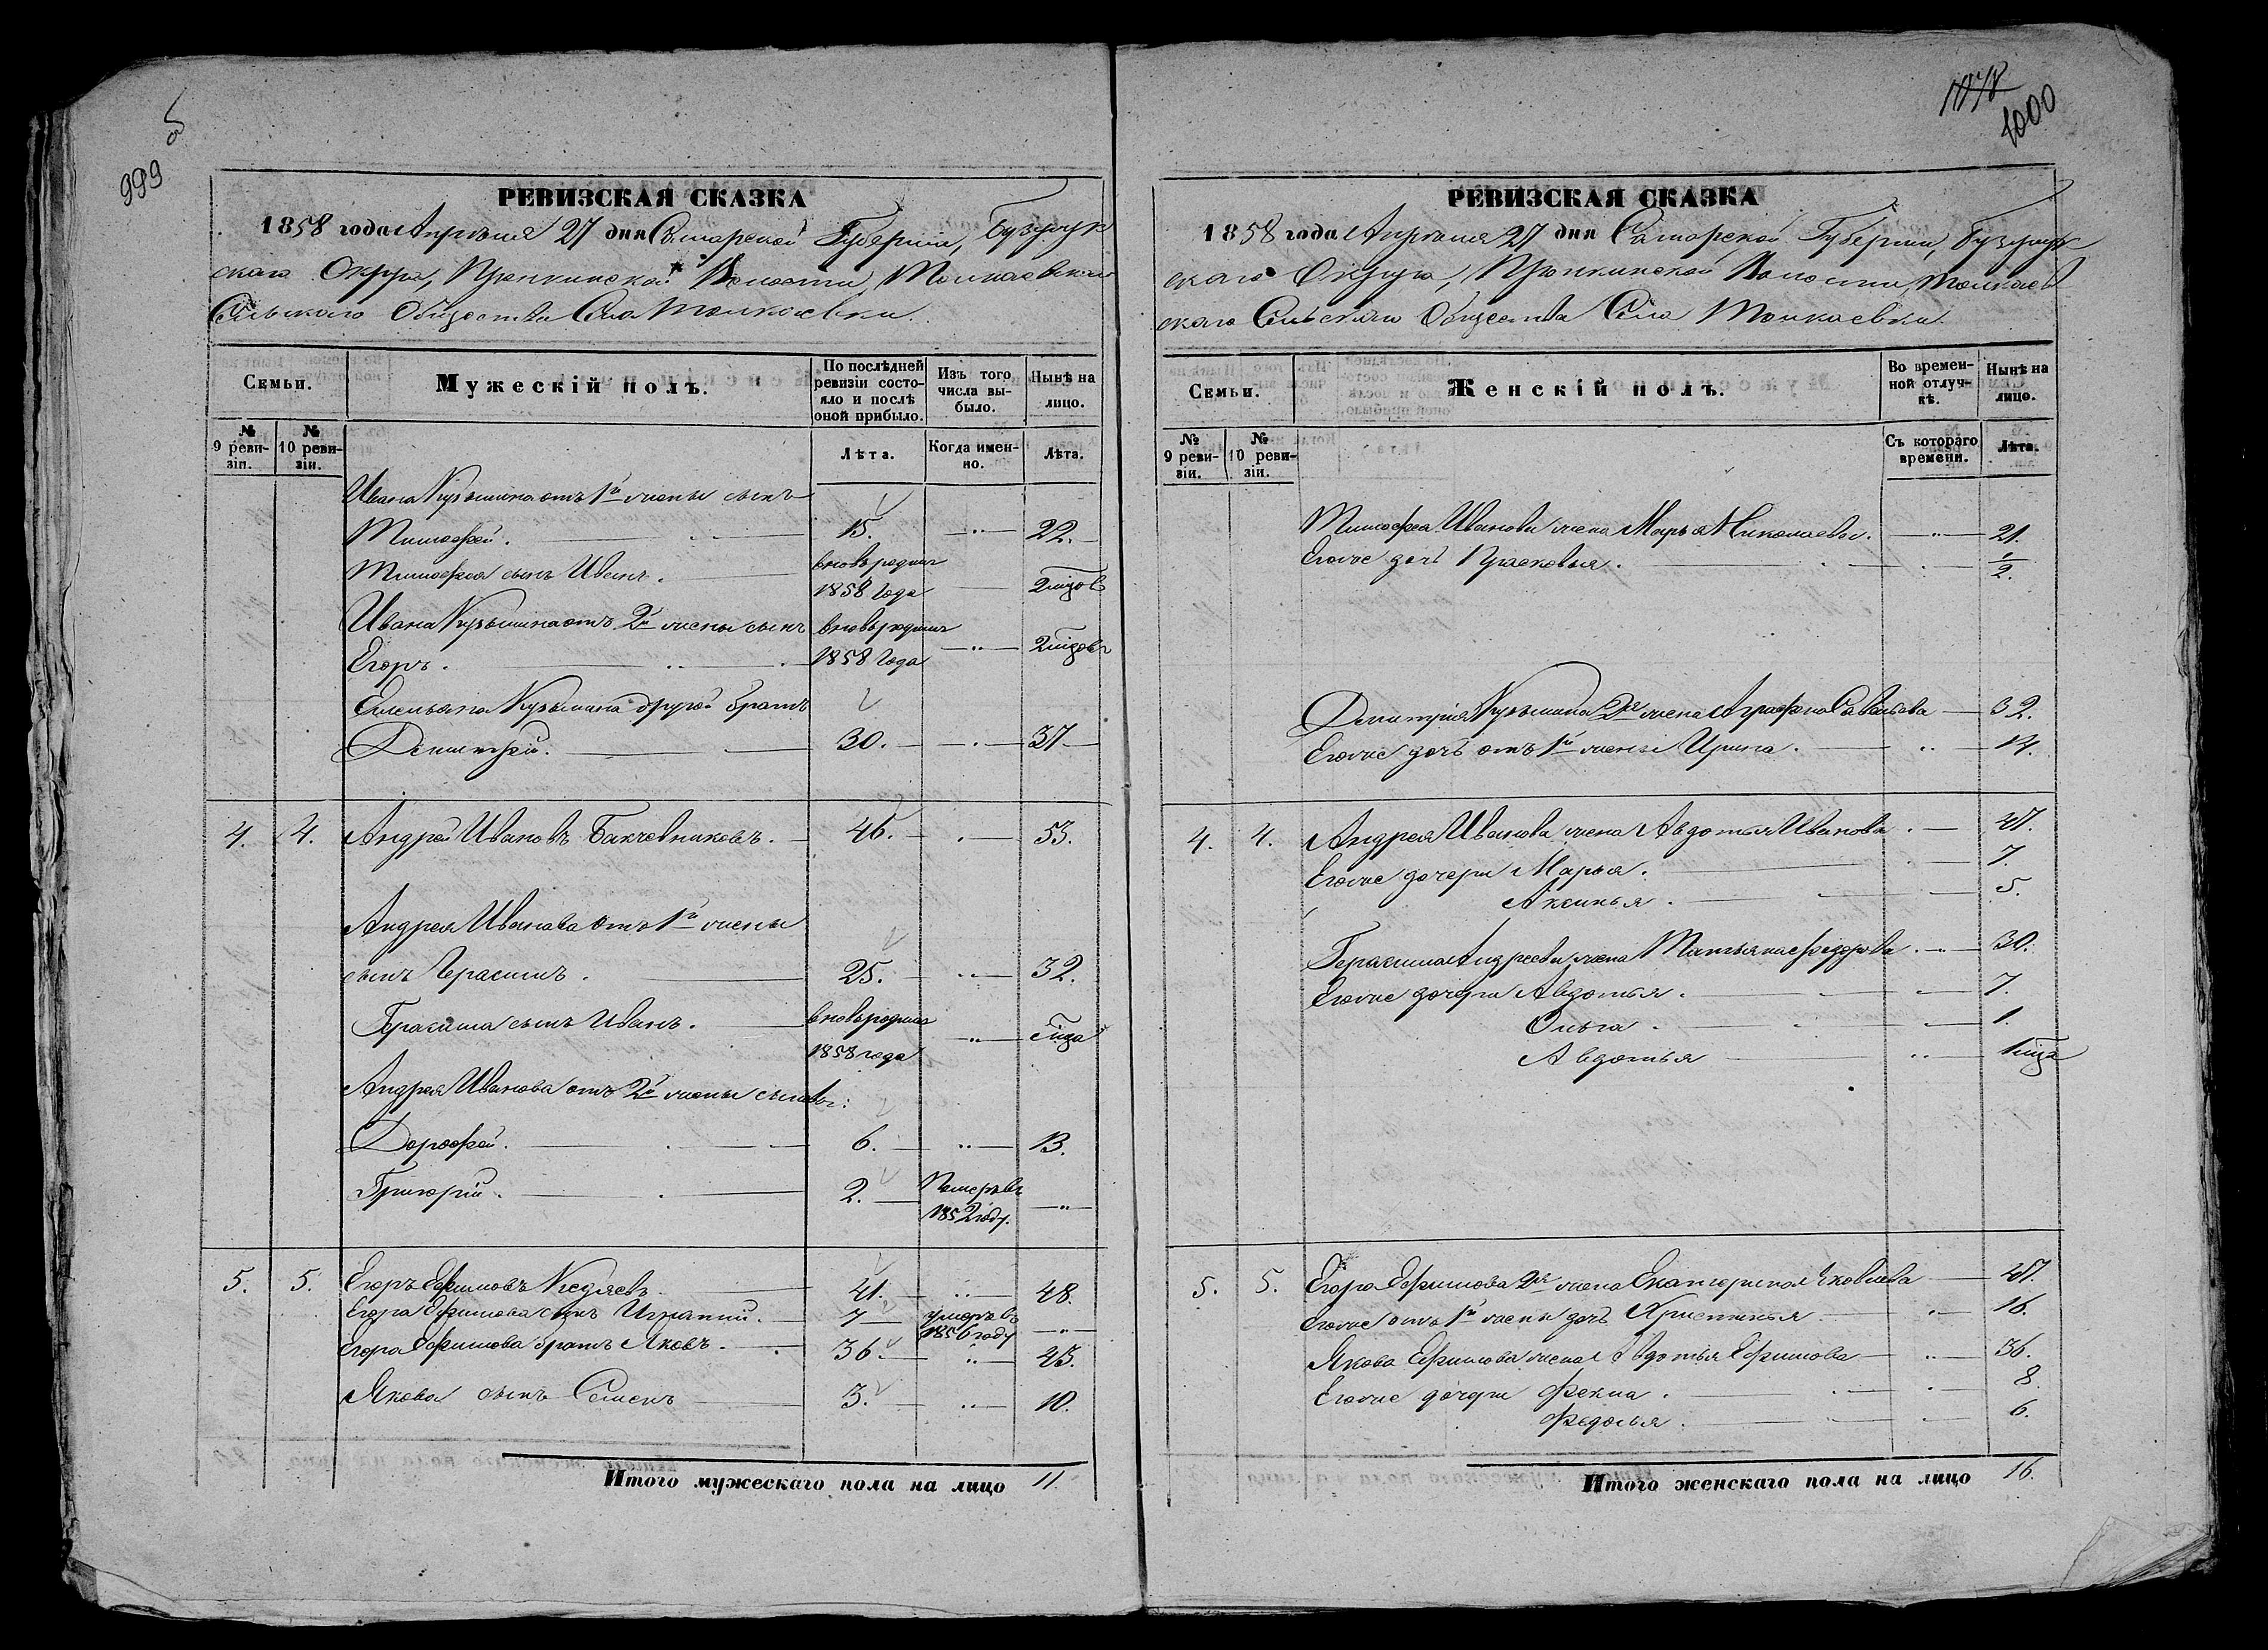 999
1000
РЕВИЗСКАЯ СКАЗКА
1858 года Апрѣля 27 дня Самарской Губерніи, Бузулук
скаго Округа, Пронькинской Волости, Толкаевскаго
Сельскаго Общества Села Толкаевки.
Семьи.
Мужескій полъ.
По послѣдней ревизіи состо-
яло и послѣ оной прибыло.
Изъ того числа вы-
было.
Нынѣ на лицо.
№ 9 реви-
зіи.
№ 10 реви-
зіи.
Лѣта.
Когда имен-
но.
Лѣта.
Ивана Кузьмина отъ 1й жены сынъ
Тимофей. 15. 22.
Тимофея сынъ Иванъ. вновьродил 1858 года
Ивана Кузьмина отъ 2й жены сынъ
Егоръ. вновьродил 1858 года
Емельяна Кузьмина другой братъ
Дмитрей. 30. 37
4. 4. Андрей Ивановъ Бакчевниковъ. 46. 53.
Андрея Иванова отъ 1й жены
сынъ Герасимъ. 25. 32.
Герасима сынъ Иванъ. вновьродил 1858 года
Андрея Иванова отъ 2й жены сыновья:
Дорофей. 6. 13.
Григорій. 2. Померъ въ 1852 году.
5. 5. Егоръ Ефимовъ Кедяевъ. 41. 48.
Егора Ефимова сынъ Игнатій. 7 умеръ въ 1856 году
Егора Ефимова братъ Яковъ. 36. 43.
Якова сынъ Семенъ 3. 10.
Итого мужескаго пола на лицо 11.
РЕВИЗСКАЯ СКАЗКА
1858 года Апрѣля 27 дня Самарской Губерніи, Бузулук
скаго Округа, Пронькинской Волости, Толкаев
скаго Сельскаго Общества Села Толкаевки.
Семьи.
Женскій полъ.
Во времен-
ной отлуч-
кѣ.
Нынѣ на лицо.
№ 9 реви-
зіи.
№ 10 реви-
зіи.
Съ котораго времени.
Лѣта.
Тимофея Иванова жена Марья Николаева. 21.
Егоже дочь Прасковья. 1/2.
Дмитрія Кузьмина 2я жена Аграфена Савельева 32.
Егоже дочь отъ 1й жены Ирина. 14.
4. 4. Андрея Иванова жена Авдотья Иванова. 47.
Егоже дочери Марья. 7.
Аксинья. 5.
Герасима Андреева жена Татьяна Федорова 30.
Егоже дочери Авдотья. 7.
Ольга. 1.
Авдотья
5. 5. Егора Ефимова 2я жена Екатерина Яковлева 47.
Егоже отъ 1й жены дочь Христинья 16.
Якова Ефимова жена Авдотья Ефимова 36.
Егоже дочери Фекла. 8.
Федосья. 6.
Итого женскаго пола на лицо 16.